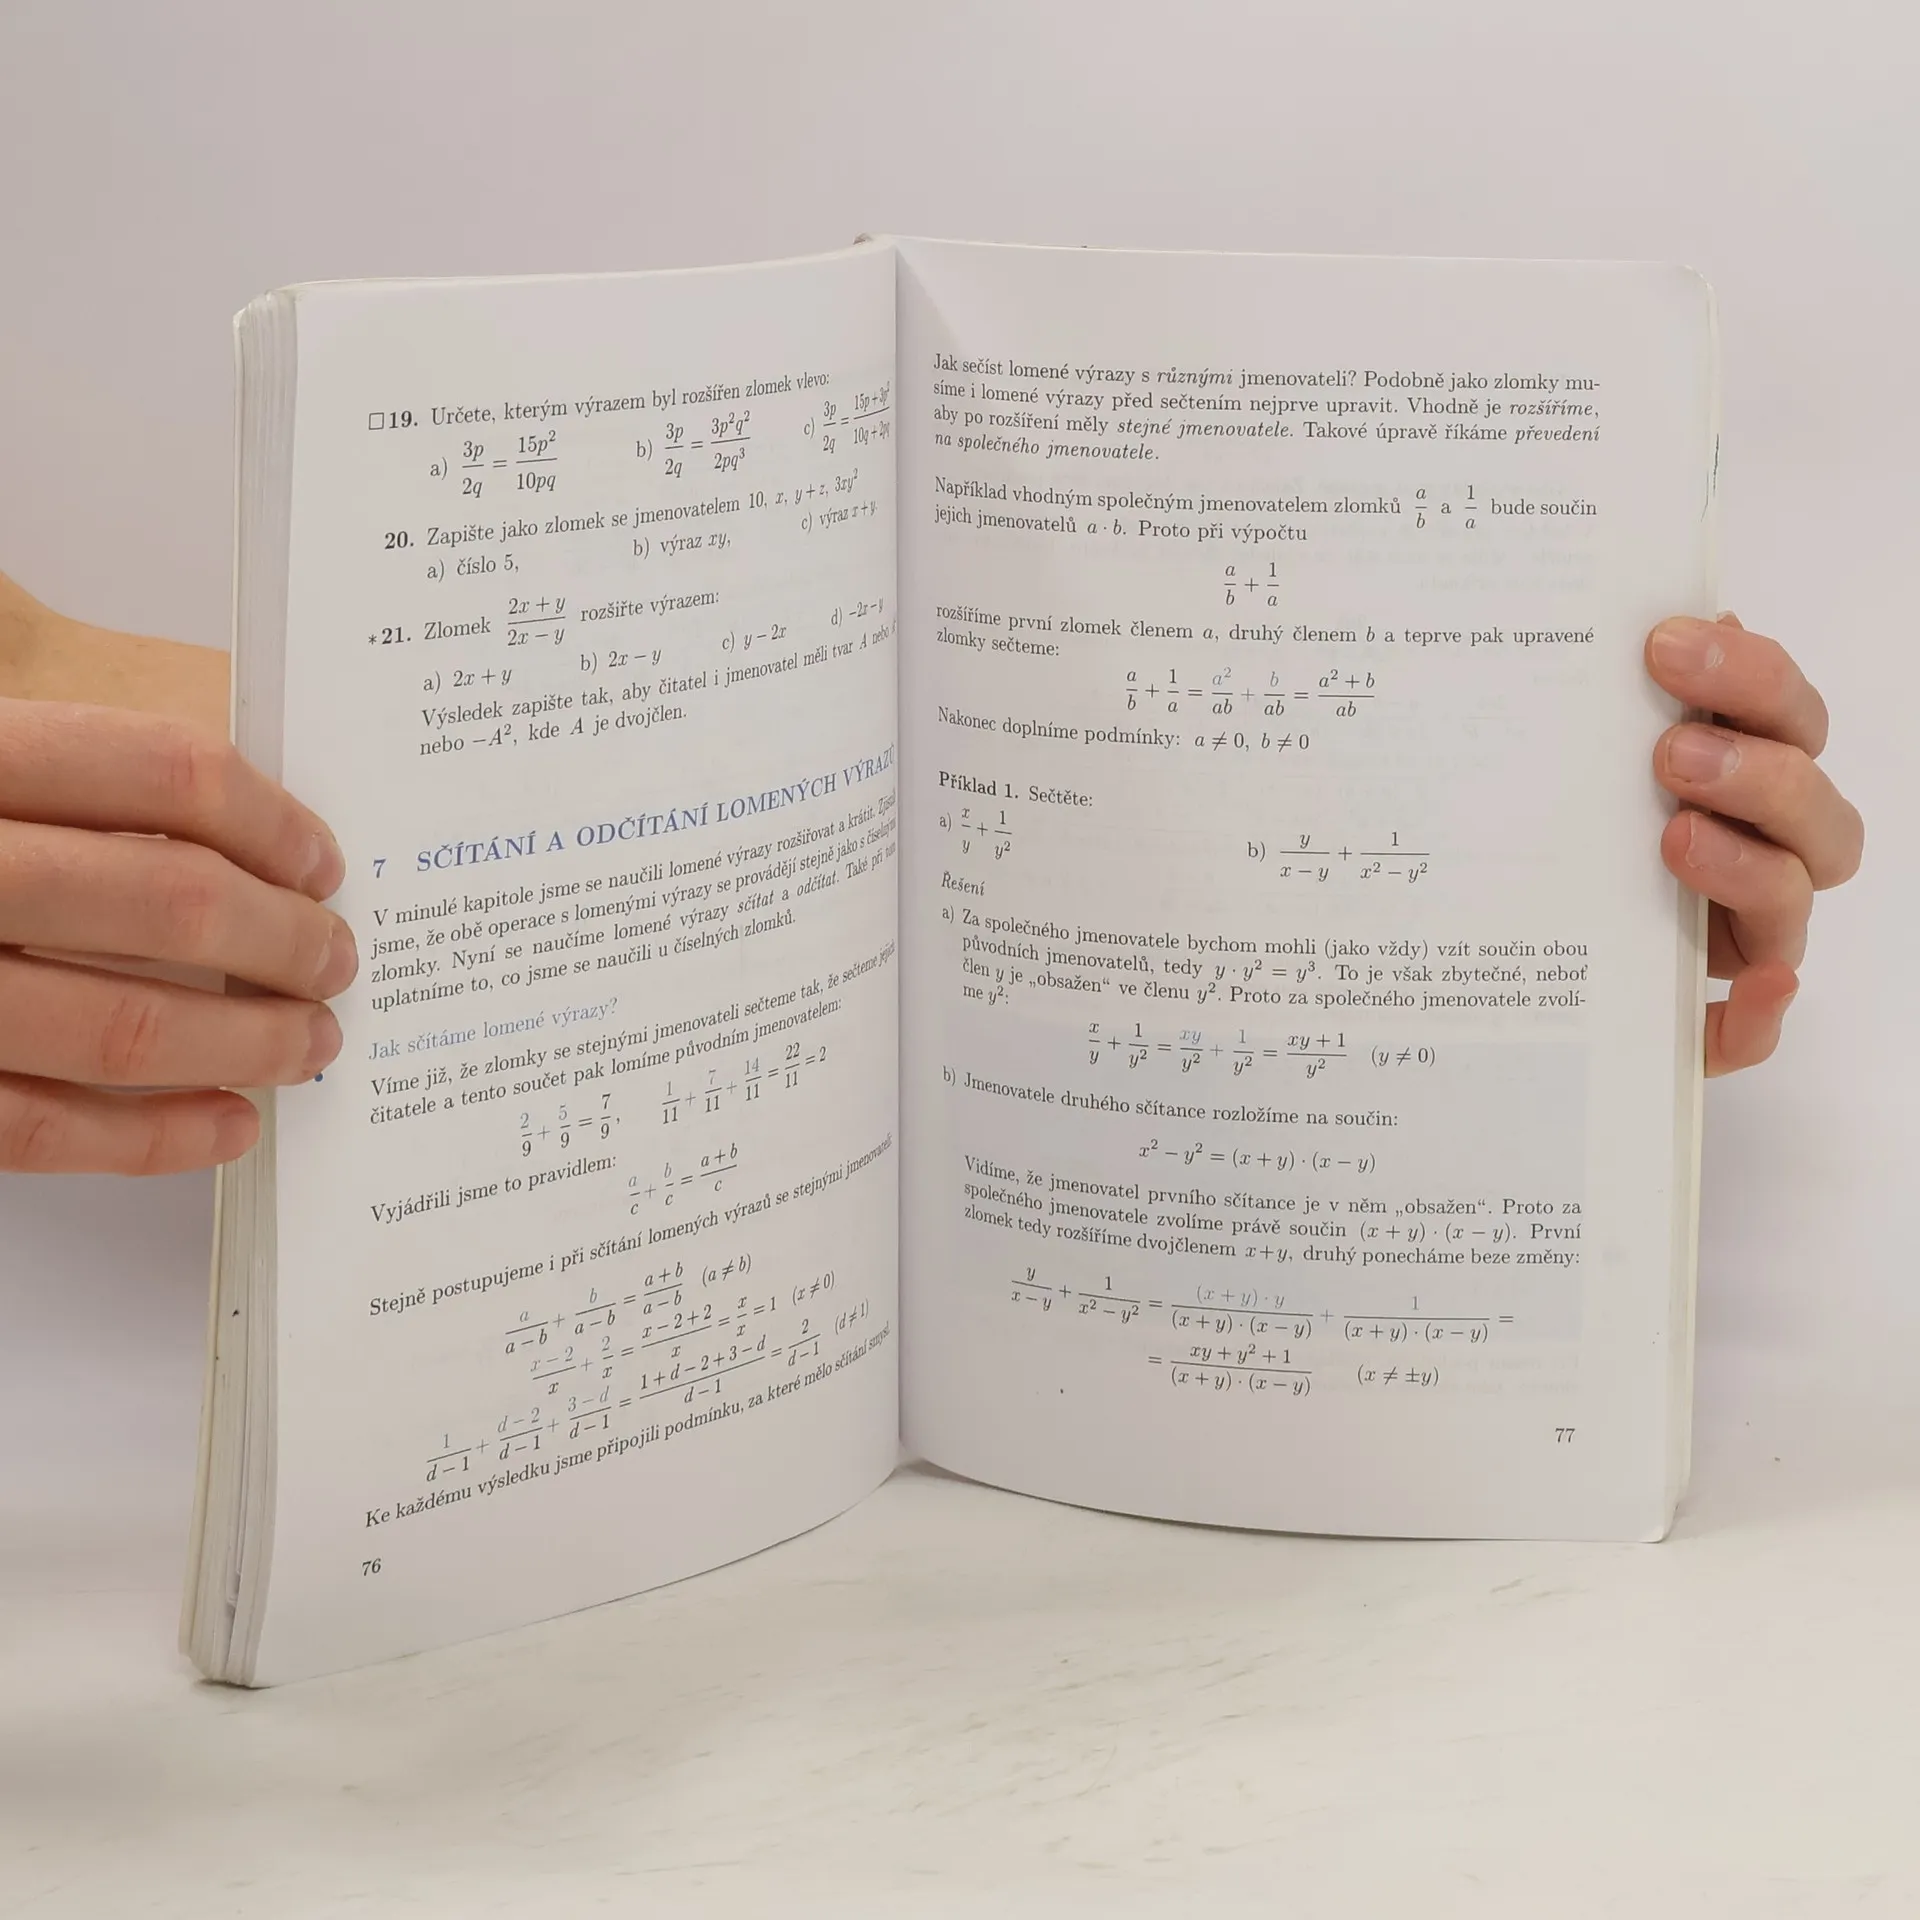 □ 19. Určete, kterým výrazem byl rozšířen zlomek vlevo:
a) 3p/2q = 15p²/10pq b) 3p/2q = 3p²q²/2pq³ c) 3p/2q = 15p+3p²/10q+2pq
20. Zapište jako zlomek se jmenovatelem 10, x, y+z, 3xy²
a) číslo 5, b) výraz xy, c) výraz x+y.
*21. Zlomek 2x + y/2x − y rozšiřte výrazem:
a) 2x + y b) 2x − y c) y − 2x d) −2x−y
Výsledek zapište tak, aby čitatel i jmenovatel měli tvar A nebo
nebo −A², kde A je dvojčlen.
7 SČÍTÁNÍ A ODČÍTÁNÍ LOMENÝCH VÝRAZŮ
V minulé kapitole jsme se naučili lomené výrazy rozšiřovat a krátit. Zjistili
jsme, že obě operace s lomenými výrazy se provádějí stejně jako s číselnými
zlomky. Nyní se naučíme lomené výrazy sčítat a odčítat. Také při tom
uplatníme to, co jsme se naučili u číselných zlomků.
Jak sčítáme lomené výrazy?
Víme již, že zlomky se stejnými jmenovateli sečteme tak, že sečteme jejich
čitatele a tento součet pak lomíme původním jmenovatelem:
2/9 + 5/9 = 7/9, 1/11 + 7/11 + 14/11 = 22/11 = 2
Vyjádřili jsme to pravidlem:
a/c + b/c = a+b/c
Stejně postupujeme i při sčítání lomených výrazů se stejnými jmenovateli:
a/a−b + b/a−b = a+b/a−b (a ≠ b)
x−2/x + 2/x = x−2+2/x = x/x = 1 (x ≠ 0)
1/d−1 + d−2/d−1 + 3−d/d−1 = 1+d−2+3−d/d−1 = 2/d−1 (d ≠ 1)
Ke každému výsledku jsme připojili podmínku, za které mělo sčítání smysl.
76
Jak sečíst lomené výrazy s různými jmenovateli? Podobně jako zlomky mu-
síme i lomené výrazy před sečtením nejprve upravit. Vhodně je rozšíříme,
aby po rozšíření měly stejné jmenovatele. Takové úpravě říkáme převedení
na společného jmenovatele.
Například vhodným společným jmenovatelem zlomků a/b a 1/a bude součin
jejich jmenovatelů a · b. Proto při výpočtu
a/b + 1/a
rozšíříme první zlomek členem a, druhý členem b a teprve pak upravené
zlomky sečteme:
a/b + 1/a = a²/ab + b/ab = a² + b/ab
Nakonec doplníme podmínky: a ≠ 0, b ≠ 0
Příklad 1. Sečtěte:
a) x/y + 1/y² b) y/x − y + 1/x² − y²
Řešení
a) Za společného jmenovatele bychom mohli (jako vždy) vzít součin obou
původních jmenovatelů, tedy y · y² = y³. To je však zbytečné, neboť
člen y je „obsažen“ ve členu y². Proto za společného jmenovatele zvolí-
me y²:
x/y + 1/y² = xy/y² + 1/y² = xy + 1/y² (y ≠ 0)
b) Jmenovatele druhého sčítance rozložíme na součin:
x² − y² = (x + y) · (x − y)
Vidíme, že jmenovatel prvního sčítance je v něm „obsažen“. Proto za
společného jmenovatele zvolíme právě součin (x + y) · (x − y). První
zlomek tedy rozšíříme dvojčlenem x+y, druhý ponecháme beze změny:
y/x − y + 1/x² − y² = (x + y) · y/(x + y) · (x − y) + 1/(x + y) · (x − y) =
= xy + y² + 1/(x + y) · (x − y) (x ≠ ±y)
77